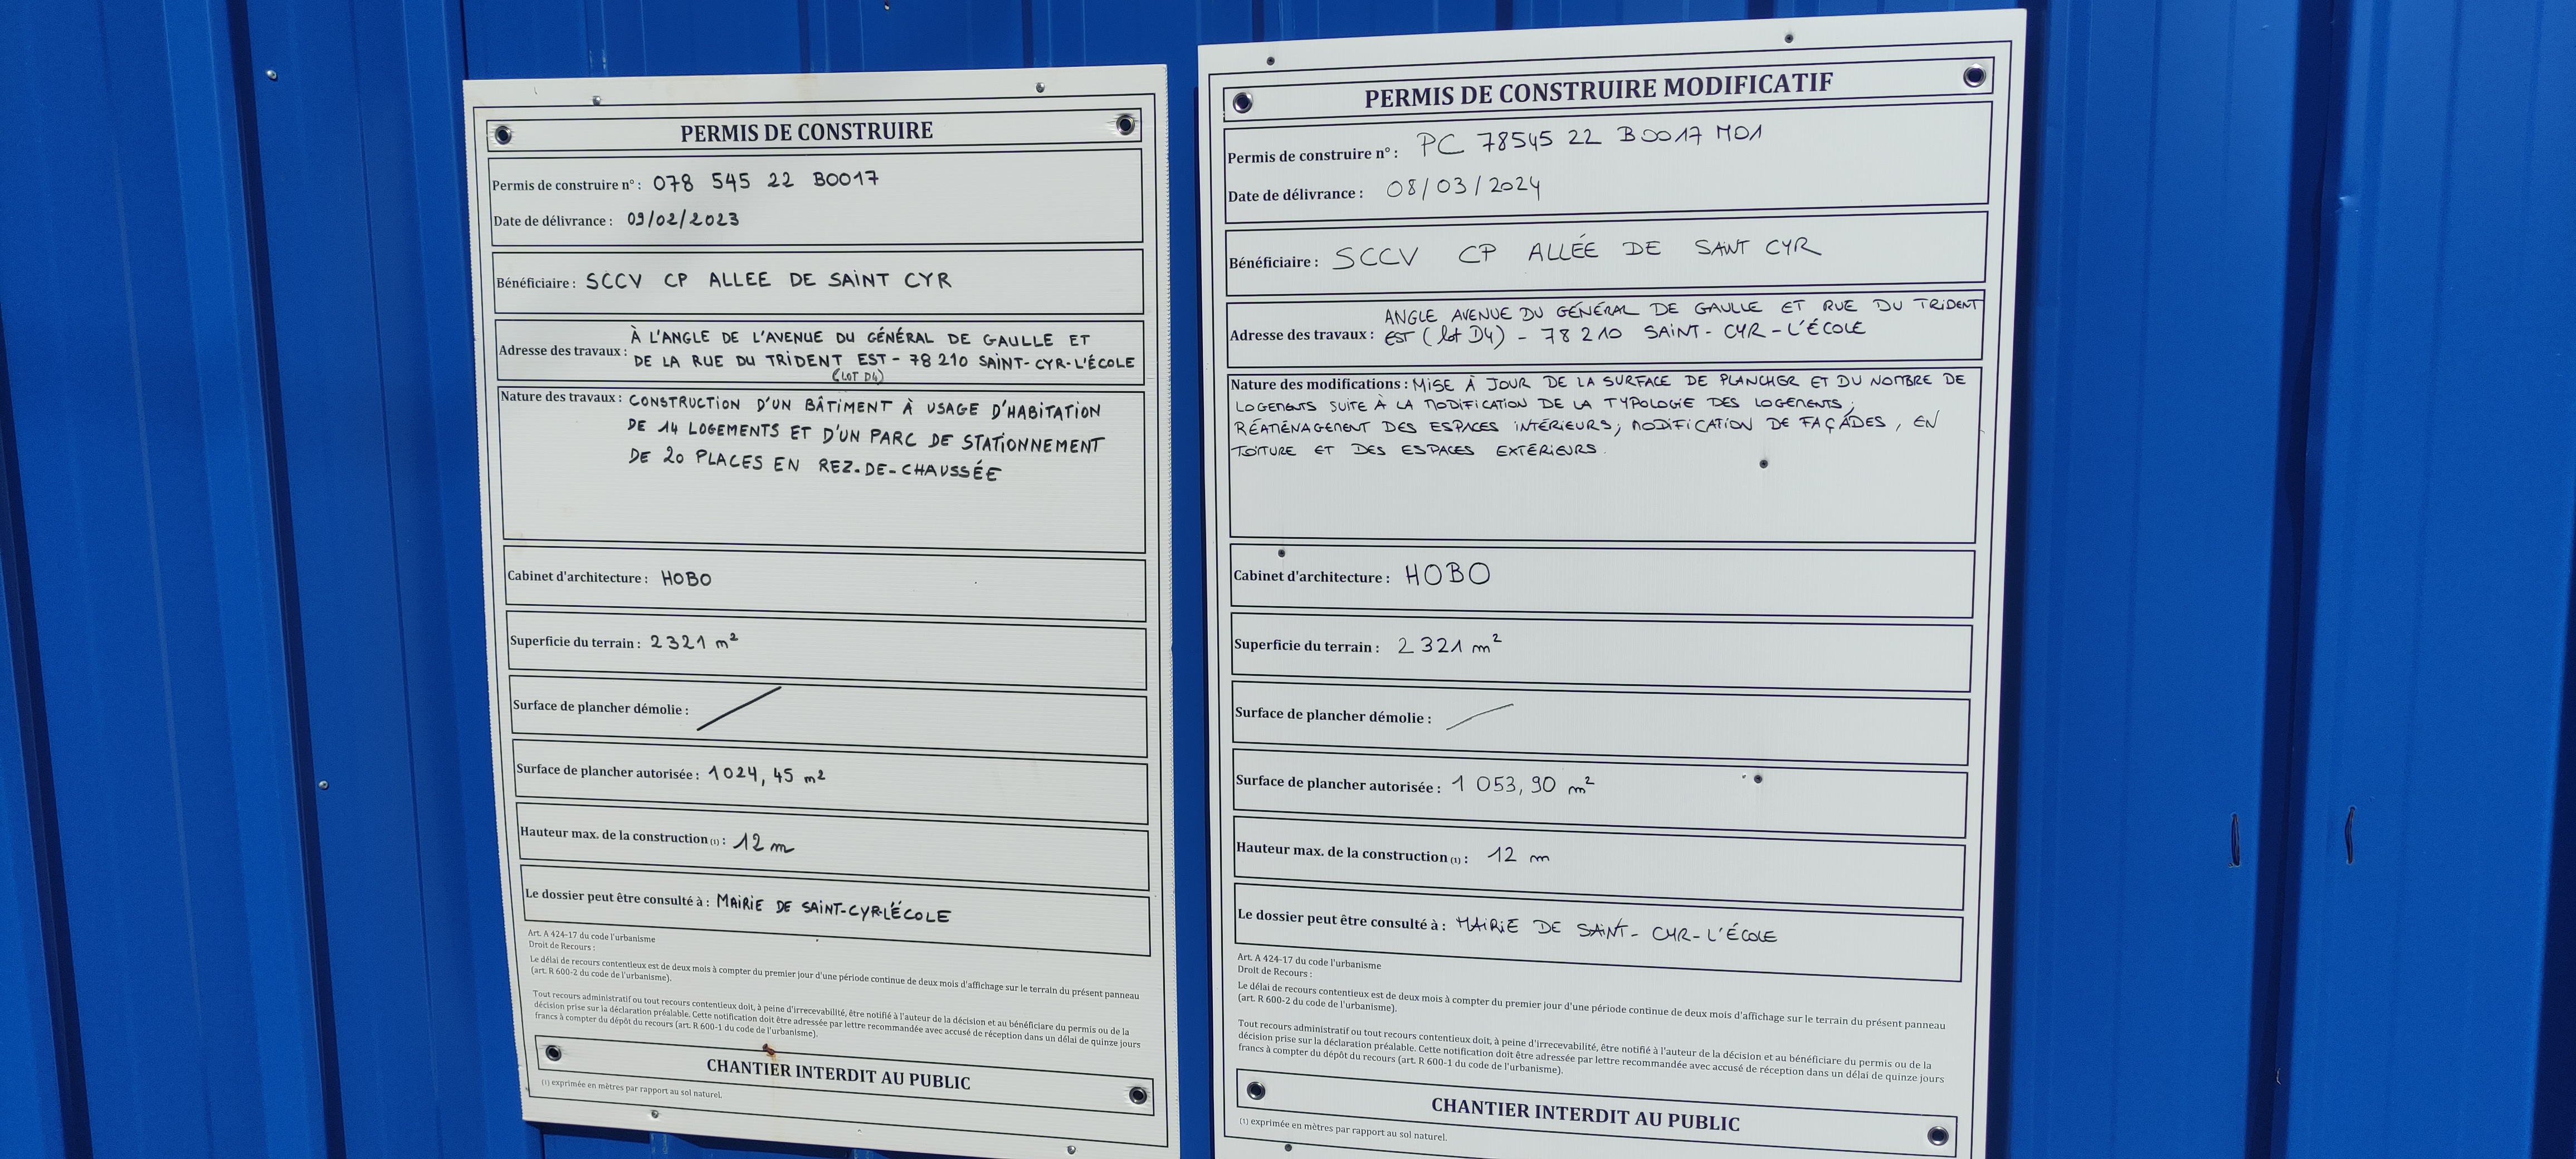 PERMIS DE CONSTRUIRE
Permis de construire n° : 078 545 22 B0017
Date de délivrance : 09/02/2023
Bénéficiaire : SCCV CP ALLEE DE SAINT CYR
Adresse des travaux : À L'ANGLE DE L'AVENUE DU GÉNÉRAL DE GAULLE ET
DE LA RUE DU TRIDENT EST - 78 210 SAINT-CYR-L'ÉCOLE
(LOT D4)
Nature des travaux : CONSTRUCTION D'UN BÂTIMENT À USAGE D'HABITATION
DE 14 LOGEMENTS ET D'UN PARC DE STATIONNEMENT
DE 20 PLACES EN REZ-DE-CHAUSSÉE
Cabinet d'architecture : HOBO
Superficie du terrain : 2321 m²
Surface de plancher démolie : /
Surface de plancher autorisée : 1024,45 m²
Hauteur max. de la construction (1) : 12 m
Le dossier peut être consulté à : MAIRIE DE SAINT-CYR-L'ÉCOLE
Art. A 424-17 du code l'urbanisme
Droit de Recours :
Le délai de recours contentieux est de deux mois à compter du premier jour d'une période continue de deux mois d'affichage sur le terrain du présent panneau
(art. R 600-2 du code de l'urbanisme).
Tout recours administratif ou tout recours contentieux doit, à peine d'irrecevabilité, être notifié à l'auteur de la décision et au bénéficiaire du permis ou de la
décision prise sur la déclaration préalable. Cette notification doit être adressée par lettre recommandée avec accusé de réception dans un délai de quinze jours
francs à compter du dépôt du recours (art. R 600-1 du code de l'urbanisme).
CHANTIER INTERDIT AU PUBLIC
(1) exprimée en mètres par rapport au sol naturel.
PERMIS DE CONSTRUIRE MODIFICATIF
Permis de construire n° : PC 78545 22 B0017 M01
Date de délivrance : 08/03/2024
Bénéficiaire : SCCV CP ALLÉE DE SAINT CYR
Adresse des travaux : ANGLE AVENUE DU GÉNÉRAL DE GAULLE ET RUE DU TRIDENT
EST (lot D4) - 78 210 SAINT-CYR-L'ÉCOLE
Nature des modifications : MISE À JOUR DE LA SURFACE DE PLANCHER ET DU NOMBRE DE
LOGEMENTS SUITE À LA MODIFICATION DE LA TYPOLOGIE DES LOGEMENTS ;
RÉAMÉNAGEMENT DES ESPACES INTÉRIEURS ; MODIFICATION DE FAÇADES, EN
TOITURE ET DES ESPACES EXTÉRIEURS.
Cabinet d'architecture : HOBO
Superficie du terrain : 2 321 m²
Surface de plancher démolie : /
Surface de plancher autorisée : 1 053,90 m²
Hauteur max. de la construction (1) : 12 m
Le dossier peut être consulté à : MAIRIE DE SAINT-CYR-L'ÉCOLE
Art. A 424-17 du code l'urbanisme
Droit de Recours :
Le délai de recours contentieux est de deux mois à compter du premier jour d'une période continue de deux mois d'affichage sur le terrain du présent panneau
(art. R 600-2 du code de l'urbanisme).
Tout recours administratif ou tout recours contentieux doit, à peine d'irrecevabilité, être notifié à l'auteur de la décision et au bénéficiaire du permis ou de la
décision prise sur la déclaration préalable. Cette notification doit être adressée par lettre recommandée avec accusé de réception dans un délai de quinze jours
francs à compter du dépôt du recours (art. R 600-1 du code de l'urbanisme).
CHANTIER INTERDIT AU PUBLIC
(1) exprimée en mètres par rapport au sol naturel.